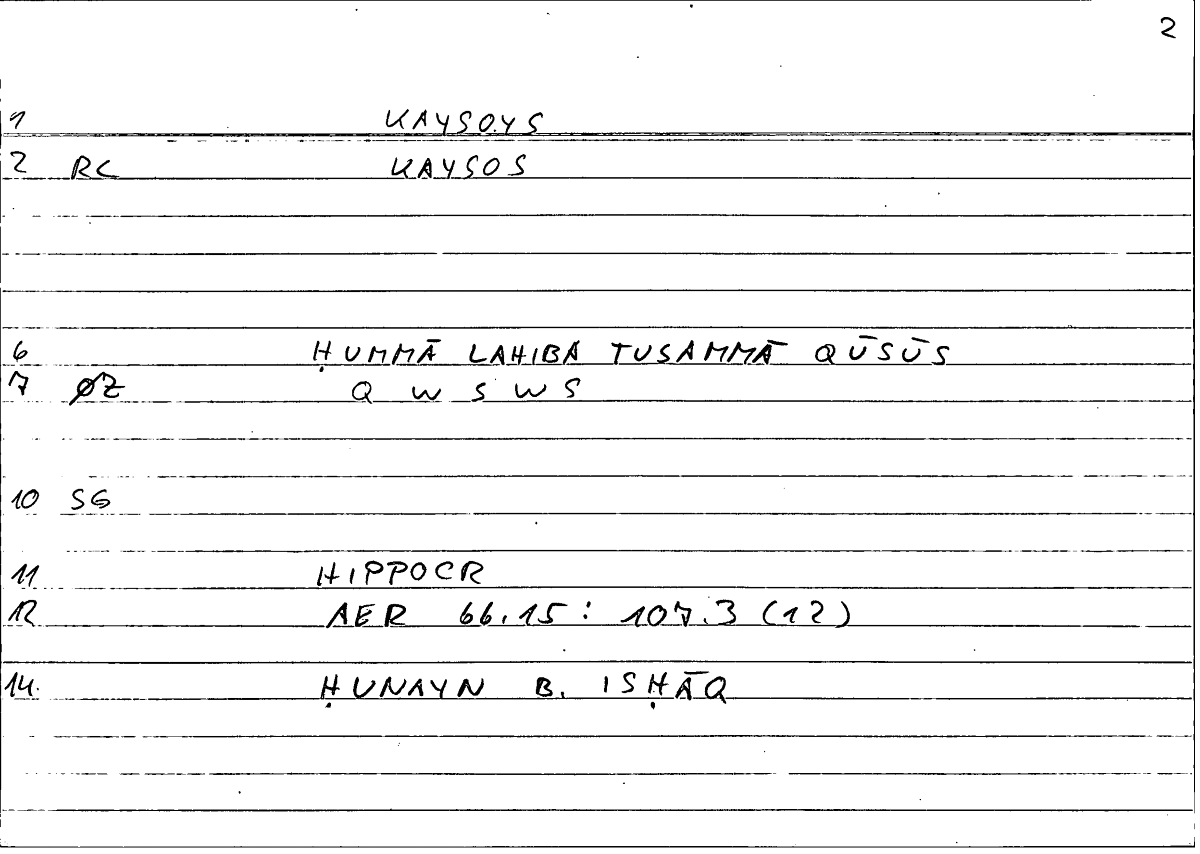 2
1 KAYSOYS
2 RC KAYSOS
6 ḤUMMĀ LAHIBA TUSAMMĀ QŪSŪS
7 ØZ Q W S W S
10 SG
11 HIPPOCR
12 AER 66.15 : 107.3 (12)
14. ḤUNAYN B. ISḤĀQ